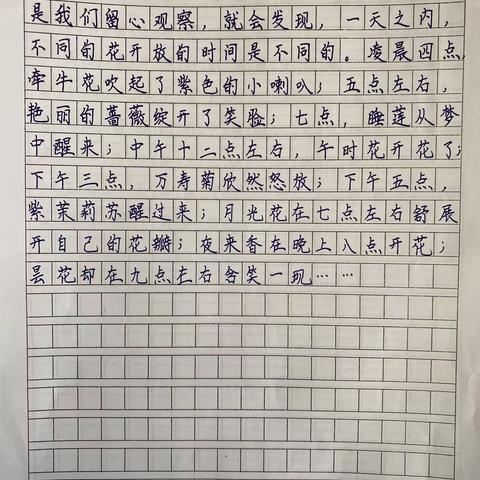 是我们留心观察，就会发现，一天之内，
不同的花开放的时间是不同的。凌晨四点，
牵牛花吹起了紫色的小喇叭；五点左右，
艳丽的蔷薇绽开了笑脸；七点，睡莲从梦
中醒来；中午十二点左右，午时花开花了；
下午三点，万寿菊欣然怒放；下午五点，
紫茉莉苏醒过来；月光花在七点左右舒展
开自己的花瓣；夜来香在晚上八点开花；
昙花却在九点左右含笑一现……